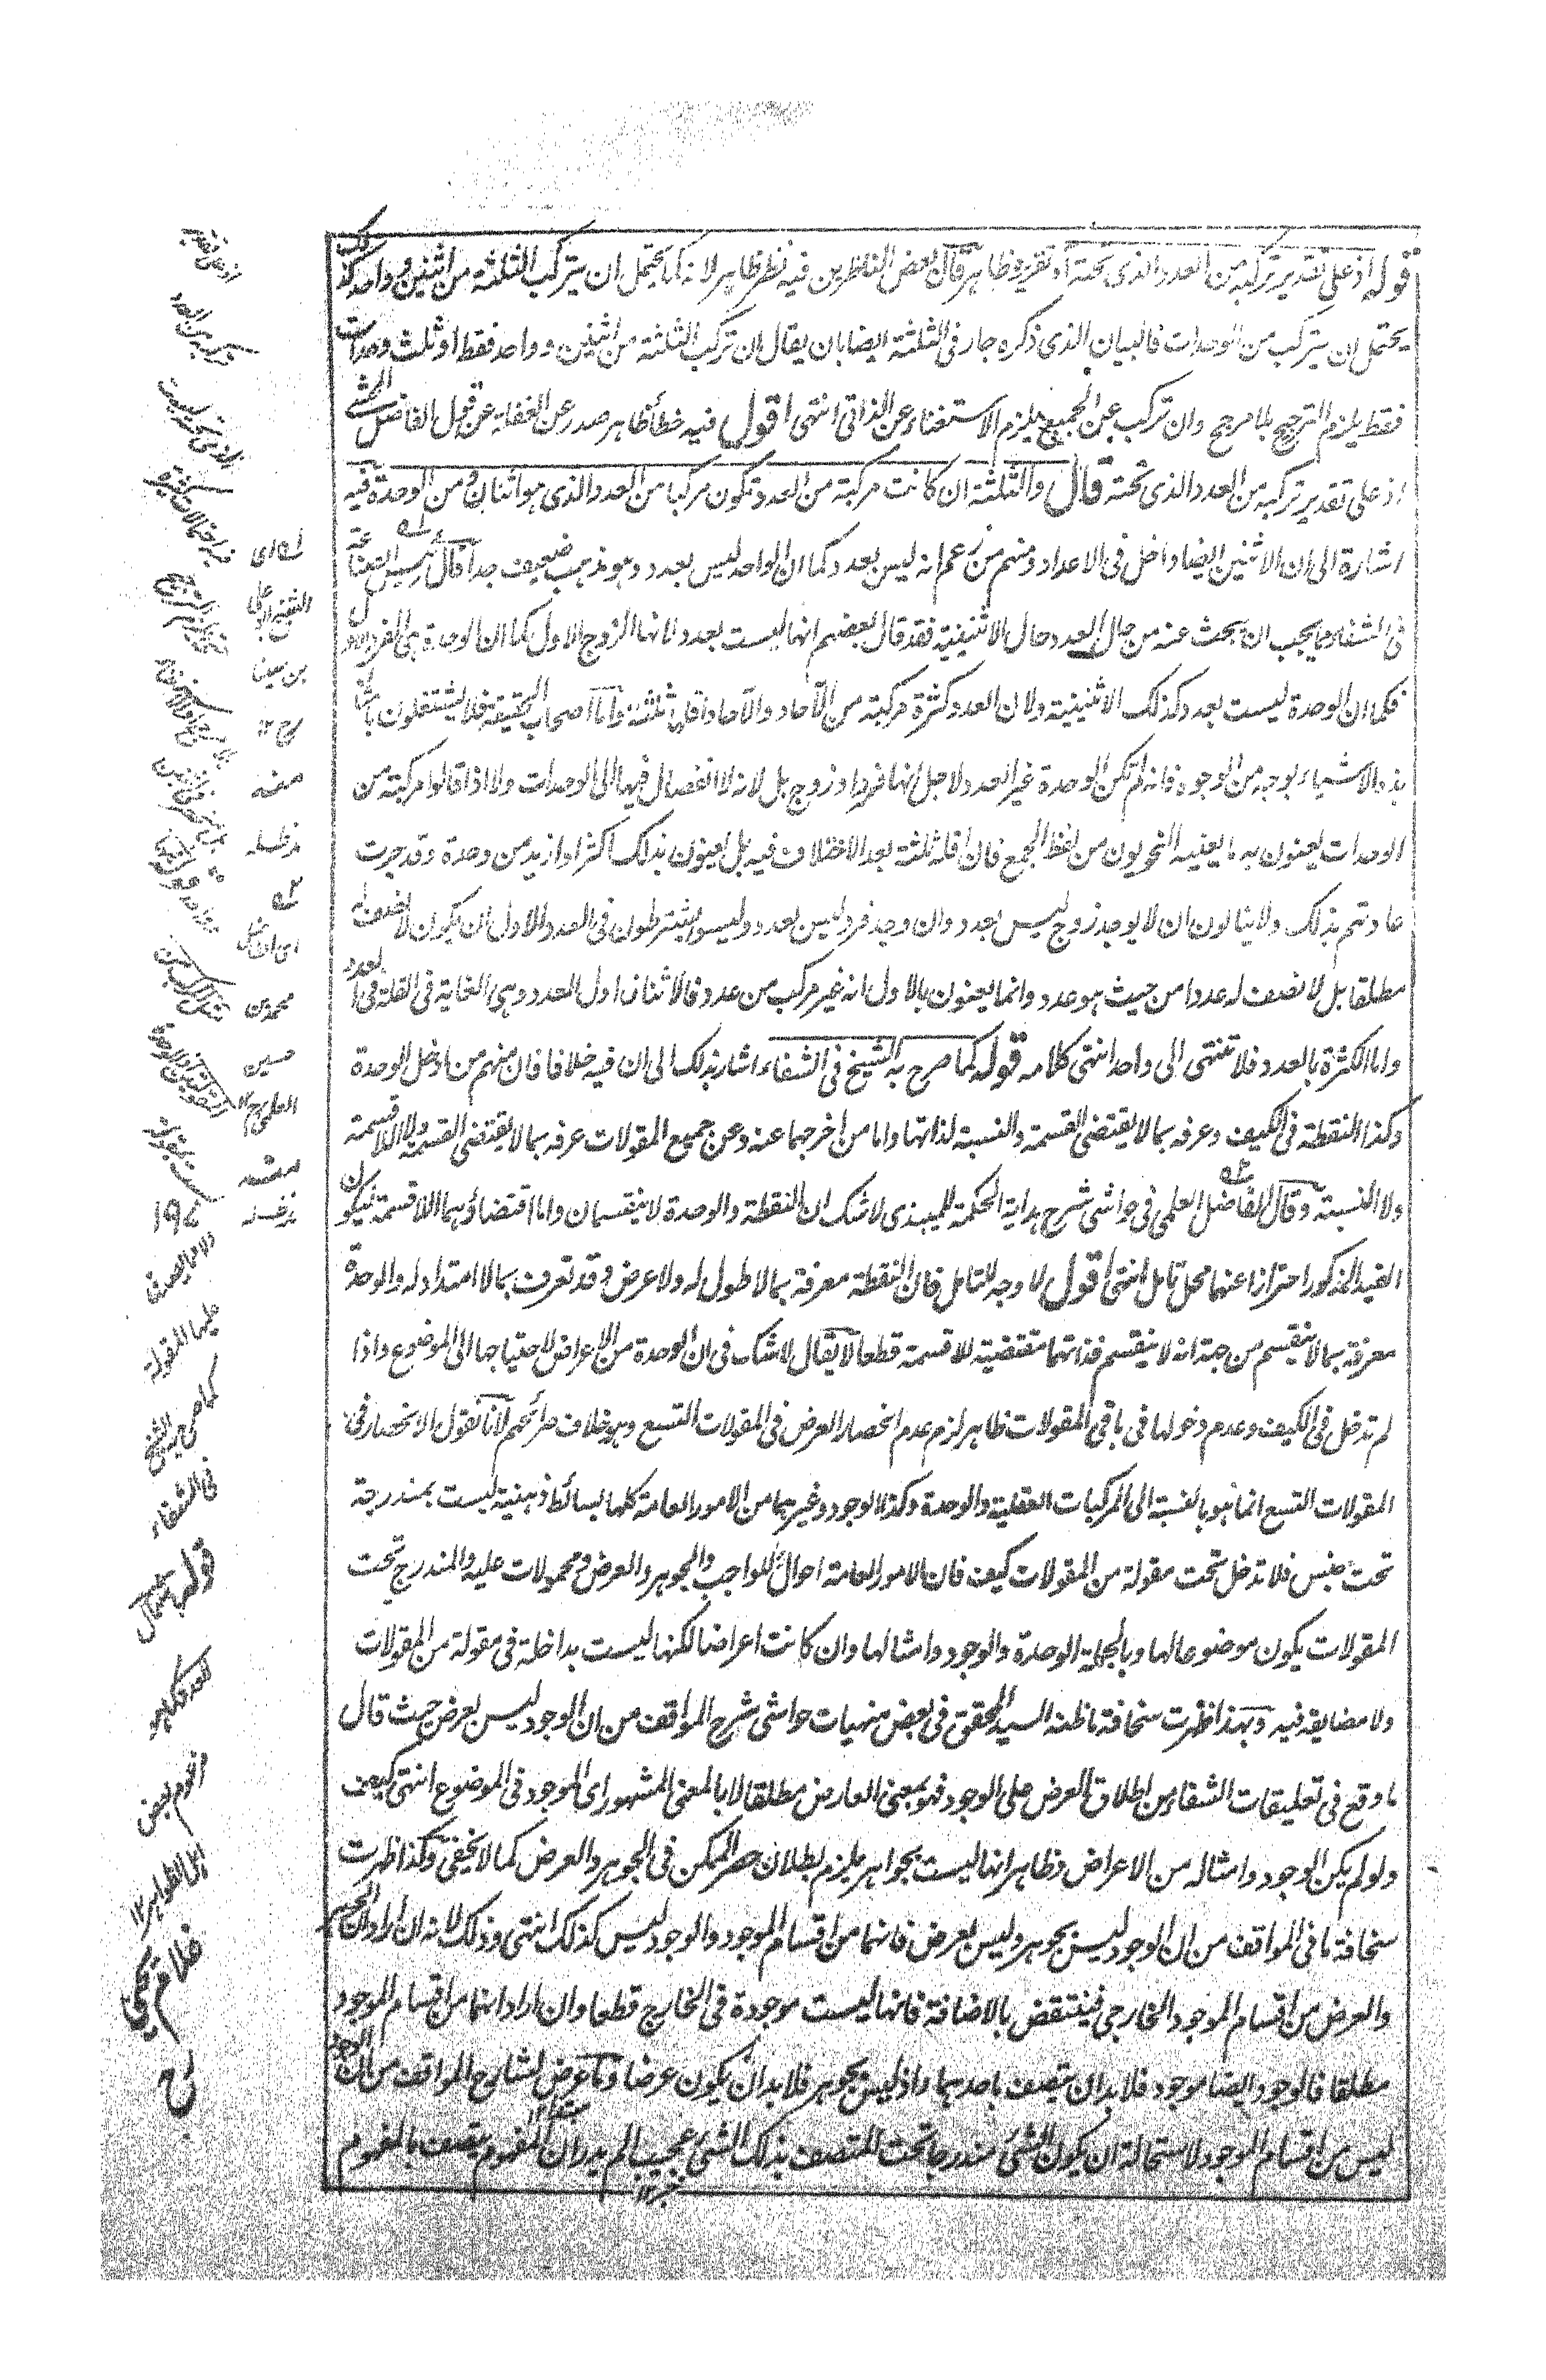 قوله اذ على تقدير تركبه من العدد الذى تحته آه تقريره ظاهر قال بعض الناظرين فيه نظر ظاهر لانه كما يحتمل ان يتركب الثلثة من اثنين و واحد كذلك
يحتمل ان يتركب من الوحدات فالبيان الذى ذكره جار فى الثلثة ايضا بان يقال ان تركب الثلثة من اثنين و واحد فقط او ثلث وحدات
فقط يلزم الترجيح بلا مرجح وان تركب عن الجميع يلزم الاستغناء عن الذاتى انتهى اقول فيه خطأ ظاهر صدر عن الغفلة عن قول الفاضل المحشى
اذ على تقدير تركبه من العدد الذى تحته قال والثلثة ان كانت مركبة من العدد تكون مركبا من العدد الذى هو اثنان ومن الوحدة فيه
اشارة الى ان الاثنين ايضا داخل فى الاعداد ومنهم من زعم انه ليس بعدد كما ان الواحد ليس بعدد وهو مذهب ضعيف جدا قال رئيس الصناعة
فى الشفاء مما يجب ان يبحث عنه من حال العدد حال الاثنينية فقد قال بعضهم انها ليست بعدد لانها الزوج الاول كما ان الوحدة هى الفرد الاول
فكما ان الوحدة ليست بعدد كذلك الاثنينية ولان العدد كثرة مركبة من الآحاد والآحاد اقلها ثلثة واما اصحاب الحقيقة فلا يشتغلون بامثال
هذه الاشياء بوجه من الوجوه فانه لم تكن الوحدة غير العدد لاجل انها فرد او زوج بل لانه لا انفصال فيها الى الوحدات ولا اذا قالوا مركبة من
الوحدات يعنون به ما يعنيه النحويون من لفظ الجمع فان اقله ثلثة بعد الاختلاف فيه بل يعنون بذلك اكثر او ازيد من وحدة وقد جرت
عادتهم بذلك ولا يبالون ان لا يوجد زوج ليس بعدد وان وجد فرد ليس بعدد وليسوا يشترطون فى العدد الاول ان يكون لا نصف له
مطلقا بل لا نصف له عددا من حيث هو عدد وانما يعنون بالاول انه غير مركب من عدد فالاثنان اول العدد وهى الغاية فى القلة فى العدد
واما الكثرة بالعدد فلا تنتهى الى واحد انتهى كلامه قوله كما صرح به الشيخ فى الشفاء اشار بذلك الى ان فيه خلافا فان منهم من ادخل الوحدة
وكذا النقطة فى الكيف وعرفه بما لا يقتضى القسمة والنسبة لذاتها واما من اخرجهما عنه وعن جميع المقولات عرفه بما لا يقتضى القسمة ولا اللاقسمة
ولا النسبة وقال الفاضل العلمى فى حواشى شرح هداية الحكمة للميبذى لا شك ان النقطة والوحدة لا ينقسمان واما اقتضاؤهما اللاقسمة ليكون
القيد المذكور احترازا عنهما محل تامل انتهى اقول لا وجه للتامل فان النقطة معرفة بما لا طول له ولا عرض وقد تعرف بما لا امتداد له والوحدة
معرفة بما لا ينقسم من جهة انه لا ينقسم فذاتهما مقتضية للاقسمة قطعا لا يقال لا شك فى ان الوحدة من الاعراض لاحتياجها الى الموضوع واذا
لم تدخل فى الكيف وعدم دخولها فى باقى المقولات ظاهر لزم عدم انحصار العرض فى المقولات التسع وهو خلاف صرائحهم لانا نقول الانحصار فى
المقولات التسع انما هو بالنسبة الى المركبات العقلية والوحدة وكذا الوجود وغيرهما من الامور العامة كلها بسائط ذهنية ليست بمندرجة
تحت جنس فلا تدخل تحت مقولة من المقولات كيف فان الامور العامة احوال للواجب والجوهر والعرض ومحمولات عليه والمندرج تحت
المقولات يكون موضوعا لها وبالجملة الوحدة والوجود وامثالها وان كانت اعراضا لكنها ليست بداخلة فى مقولة من المقولات
ولا مضايقة فيه وبهذا ظهرت سخافة ما ظنه السيد المحقق فى بعض منهيات حواشى شرح المواقف من ان الوجود ليس بعرض حيث قال
ما وقع فى تعليقات الشفاء من اطلاق العرض على الوجود فهو بمعنى العارض مطلقا لا بالمعنى المشهور اى الموجود فى الموضوع انتهى كيف
ولو لم يكن الوجود وامثاله من الاعراض وظاهر انها ليست بجواهر يلزم بطلان حصر الممكن فى الجوهر والعرض كما لا يخفى وكذا ظهرت
سخافة ما فى المواقف من ان الوجود ليس بجوهر وليس بعرض فانهما من اقسام الموجود والوجود ليس كذلك انتهى وذلك لانه ان اراد ان الجوهر
والعرض من اقسام الموجود الخارجى فينتقض بالاضافة فانها ليست موجودة فى الخارج قطعا وان اراد انهما من اقسام الموجود
مطلقا فالوجود ايضا موجود فلا بد ان يتصف باحدهما واذ ليس بجوهر فلا بد ان يكون عرضا وما عرض لشارح المواقف من ان الوجود
ليس من اقسام الموجود لاستحالة ان يكون الشئ مندرجا تحت المتصف بذلك الشئ عجيب الم يدر ان المفهوم يتصف بالمفهوم
مبتدأ ١٢
خبر ١٢
له اى
الشيخ ابو على
بن سينا
رح ١٢
منه
مد ظله
له
اى الفاضل
محمد بن
حسين
العلمى رح ١٢
منه
مد ظله
كما صرح به الشيخ
فى الشفاء
قوله